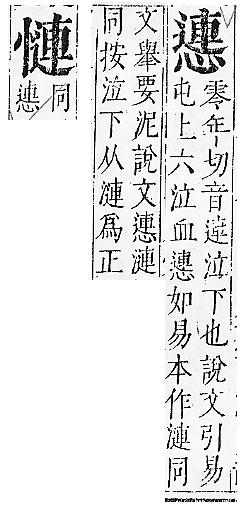 𢠵
零年切音連泣下也說文引易
屯上六泣血𢠵如易本作漣同
文舉要泥說文𢠵漣
同按泣下从漣爲正
慩
同
𢠵